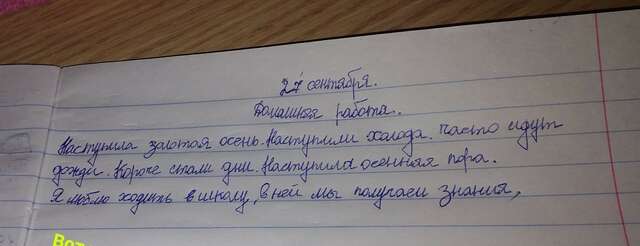 27 сентября.
Домашняя работа.
Наступила золотая осень. Наступили холода. Часто идут
дожди. Короче стали дни. Наступила осенняя пора.
Я люблю ходить в школу, в ней мы получаем знания,
Вот